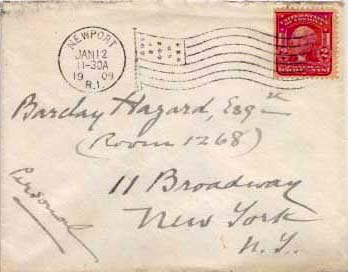 NEWPORT
JAN 12
11-30A
1909
R.I.
Barclay Hazard, Esqre
(Room 1268)
11 Broadway
New York
N.Y.
Personal